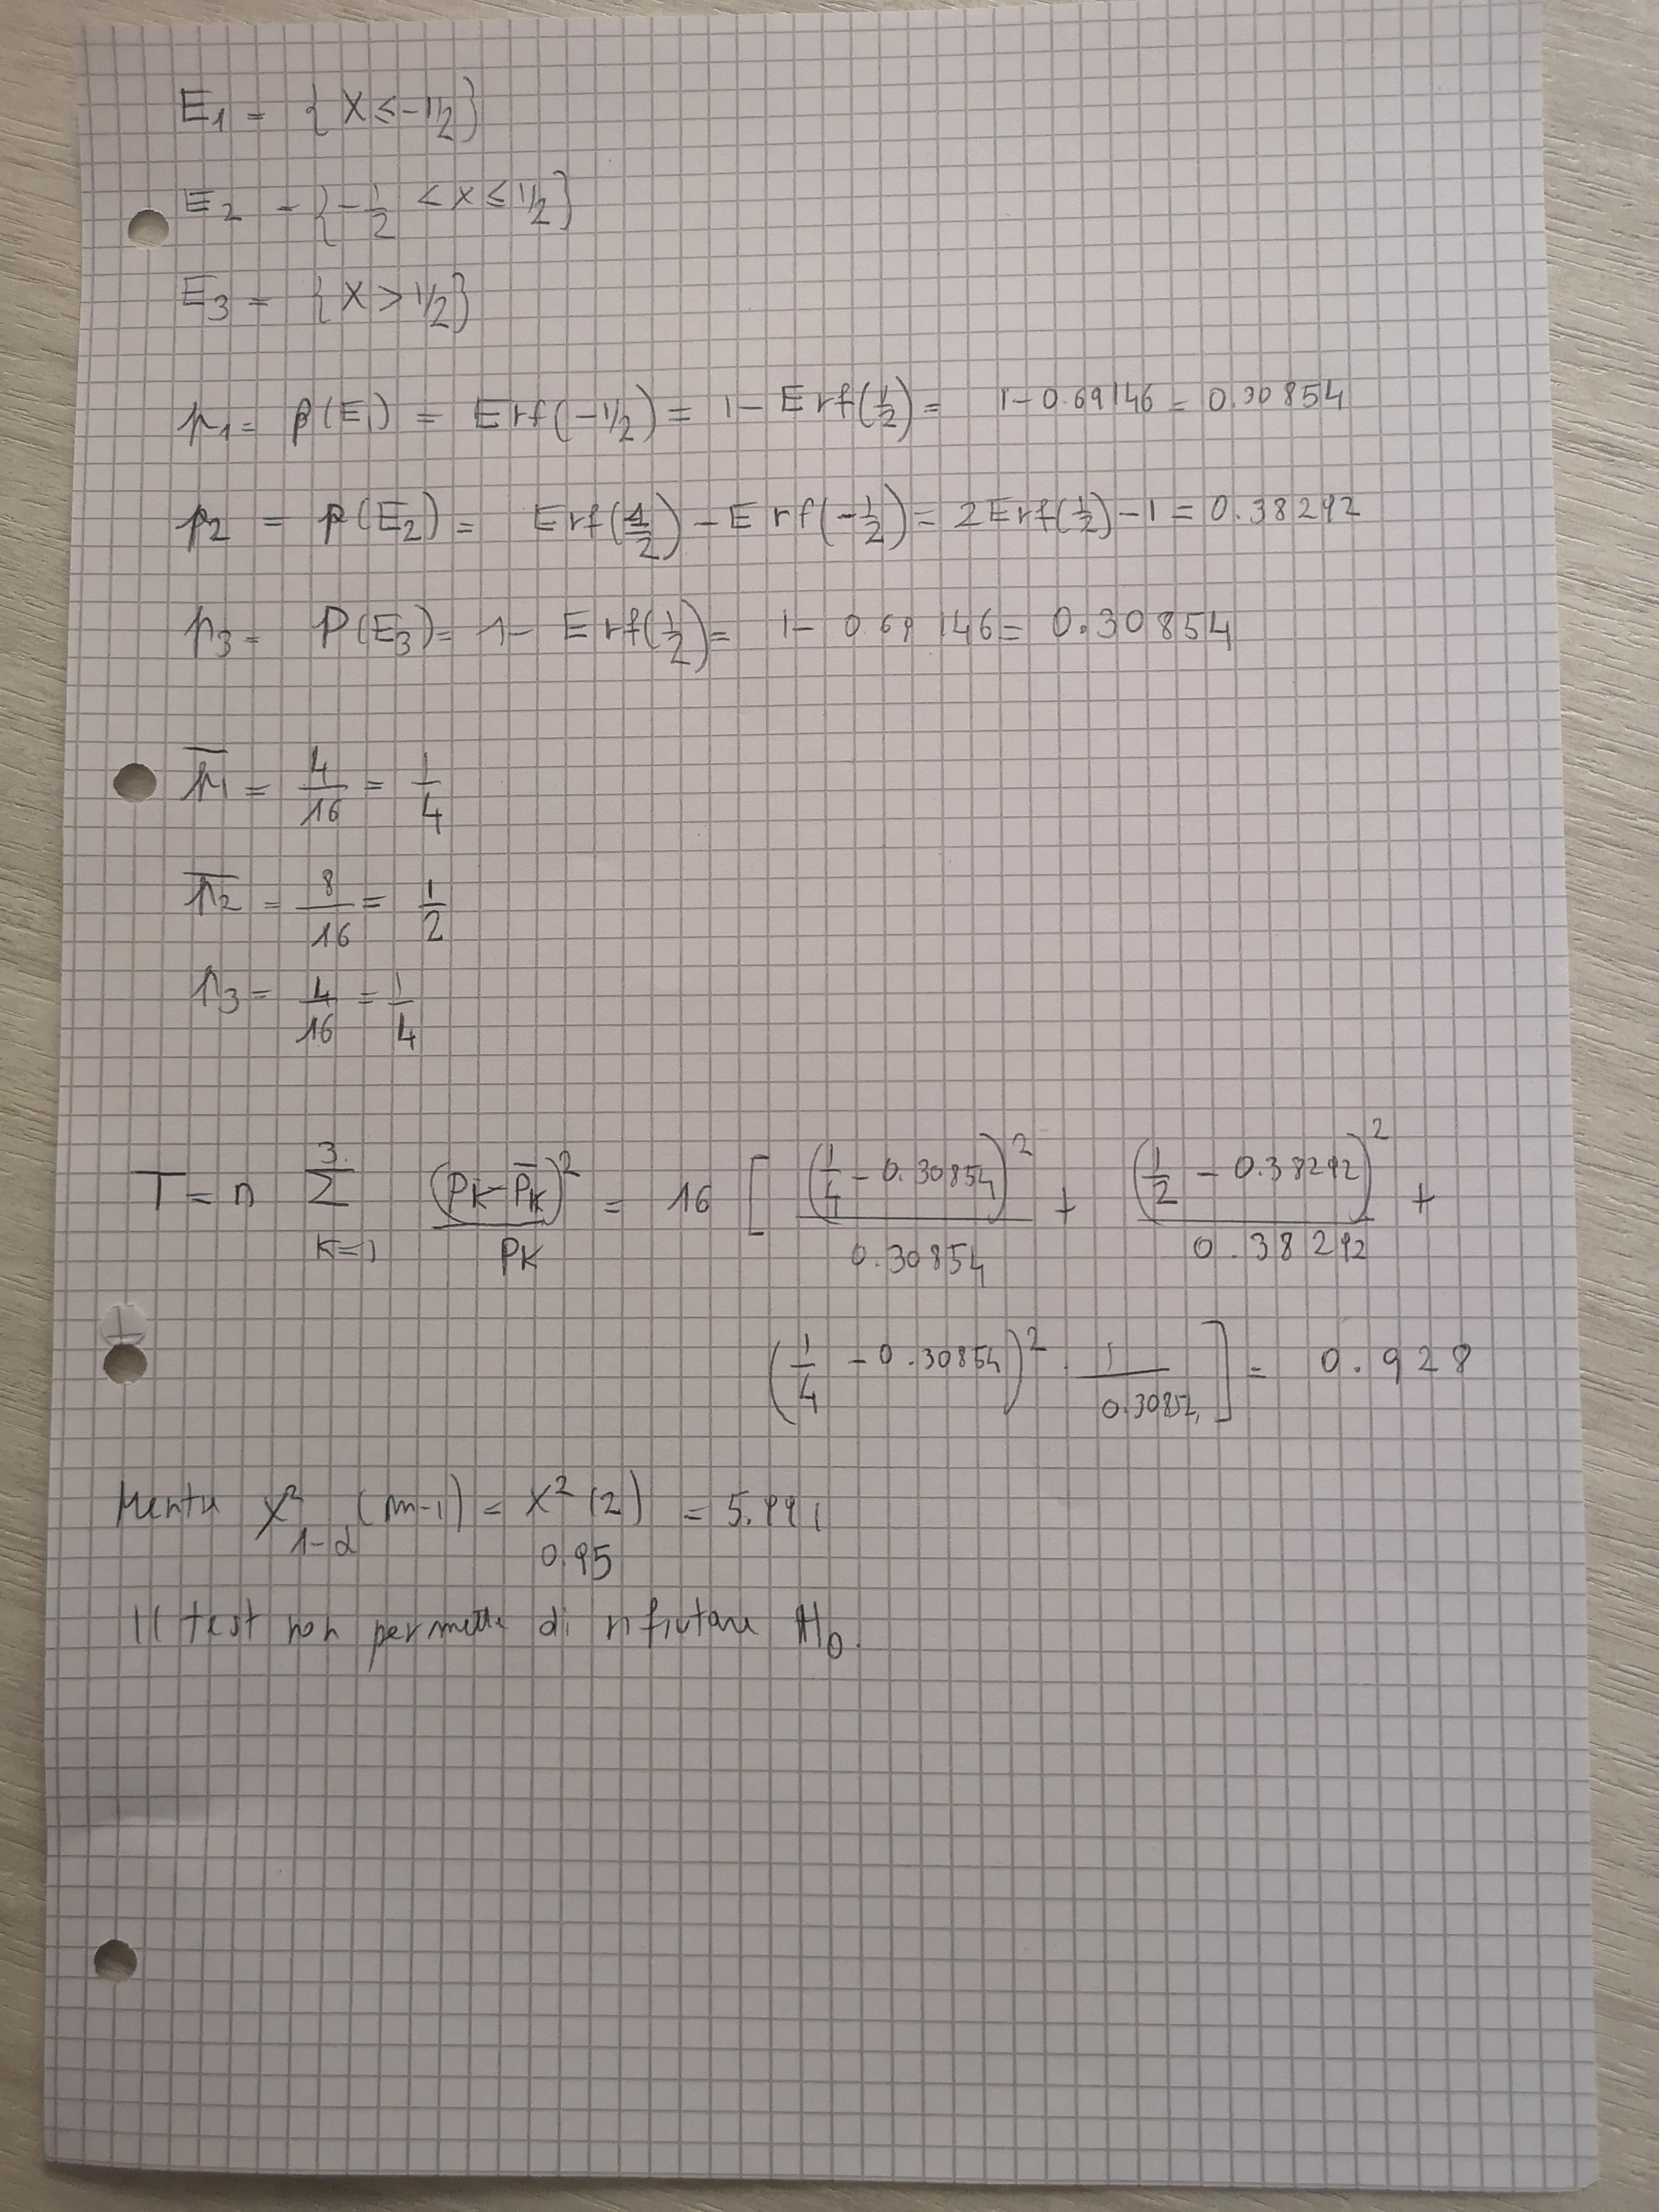 E₁ = { X ≤ -1/2 }
E₂ = { -1/2 < X ≤ 1/2 }
E₃ = { X > 1/2 }
p₁ = P(E₁) = Erf(-1/2) = 1 - Erf(1/2) = 1 - 0.69146 = 0.30854
p₂ = P(E₂) = Erf(1/2) - Erf(-1/2) = 2 Erf(1/2) - 1 = 0.38292
p₃ = P(E₃) = 1 - Erf(1/2) = 1 - 0.69146 = 0.30854
p̄₁ = 4/16 = 1/4
p̄₂ = 8/16 = 1/2
p₃ = 4/16 = 1/4
T = n Σ_{K=1}^{3} (pK - p̄K)²/pK = 16 [ (1/4 - 0.30854)²/0.30854 + (1/2 - 0.38292)²/0.38292 +
(1/4 - 0.30854)² · 1/0.30854 ] = 0.928
Mentre χ²_{1-α} (m-1) = χ²_{0.95} (2) = 5.991
Il test non permette di rifiutare H₀.